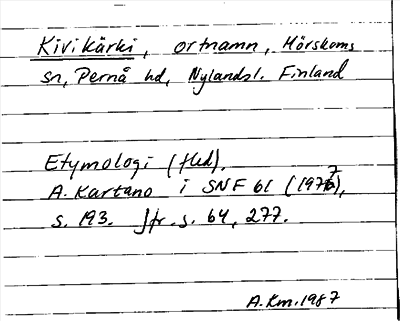 Kivikärki, ortnamn, Mörskoms
sn, Pernå hd, Nylandsl. Finland
Etymologi (fled).
A. Kartano i SNF 61 (1977),
s. 193. Jfr s. 64, 277.
A.Km.1987